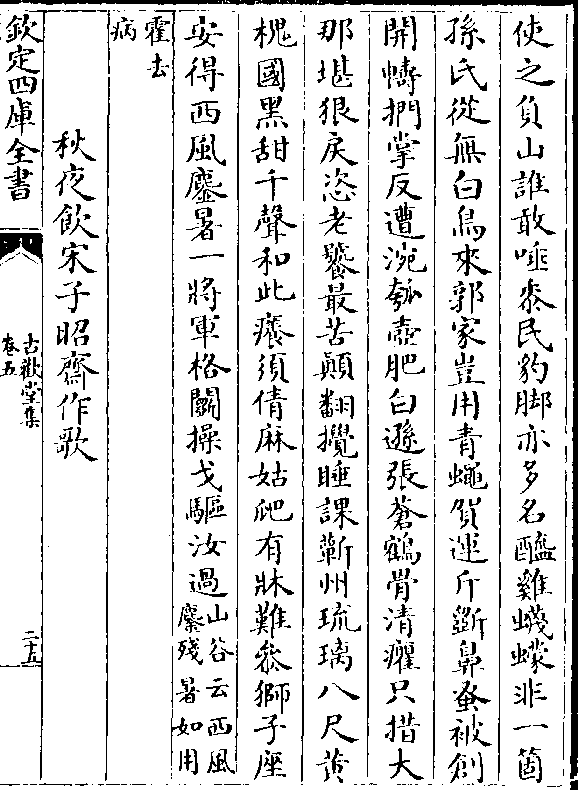 使之負山誰敢唾泰民豹脚亦多名醯雞蠛蠓非一箇
孫氏從無白鳥來郭家豈用青蠅賀運斤斵鼻蚤被創
開幬捫掌反遭涴瓠壺肥白遜張蒼鶴骨清癯只措大
那堪狠戾恣老饕最苦顛翻攪睡課蘄州琉璃八尺黄
槐國黑甜千聲和此癢須倩麻姑爬有牀難叅獅子座
安得西風鏖暑一將軍格鬭操戈驅汝過山谷云西風
鏖殘暑如用
霍去
病
秋夜飲宋子昭齋作歌
欽定四庫全書
古歡堂集
卷五
二十五